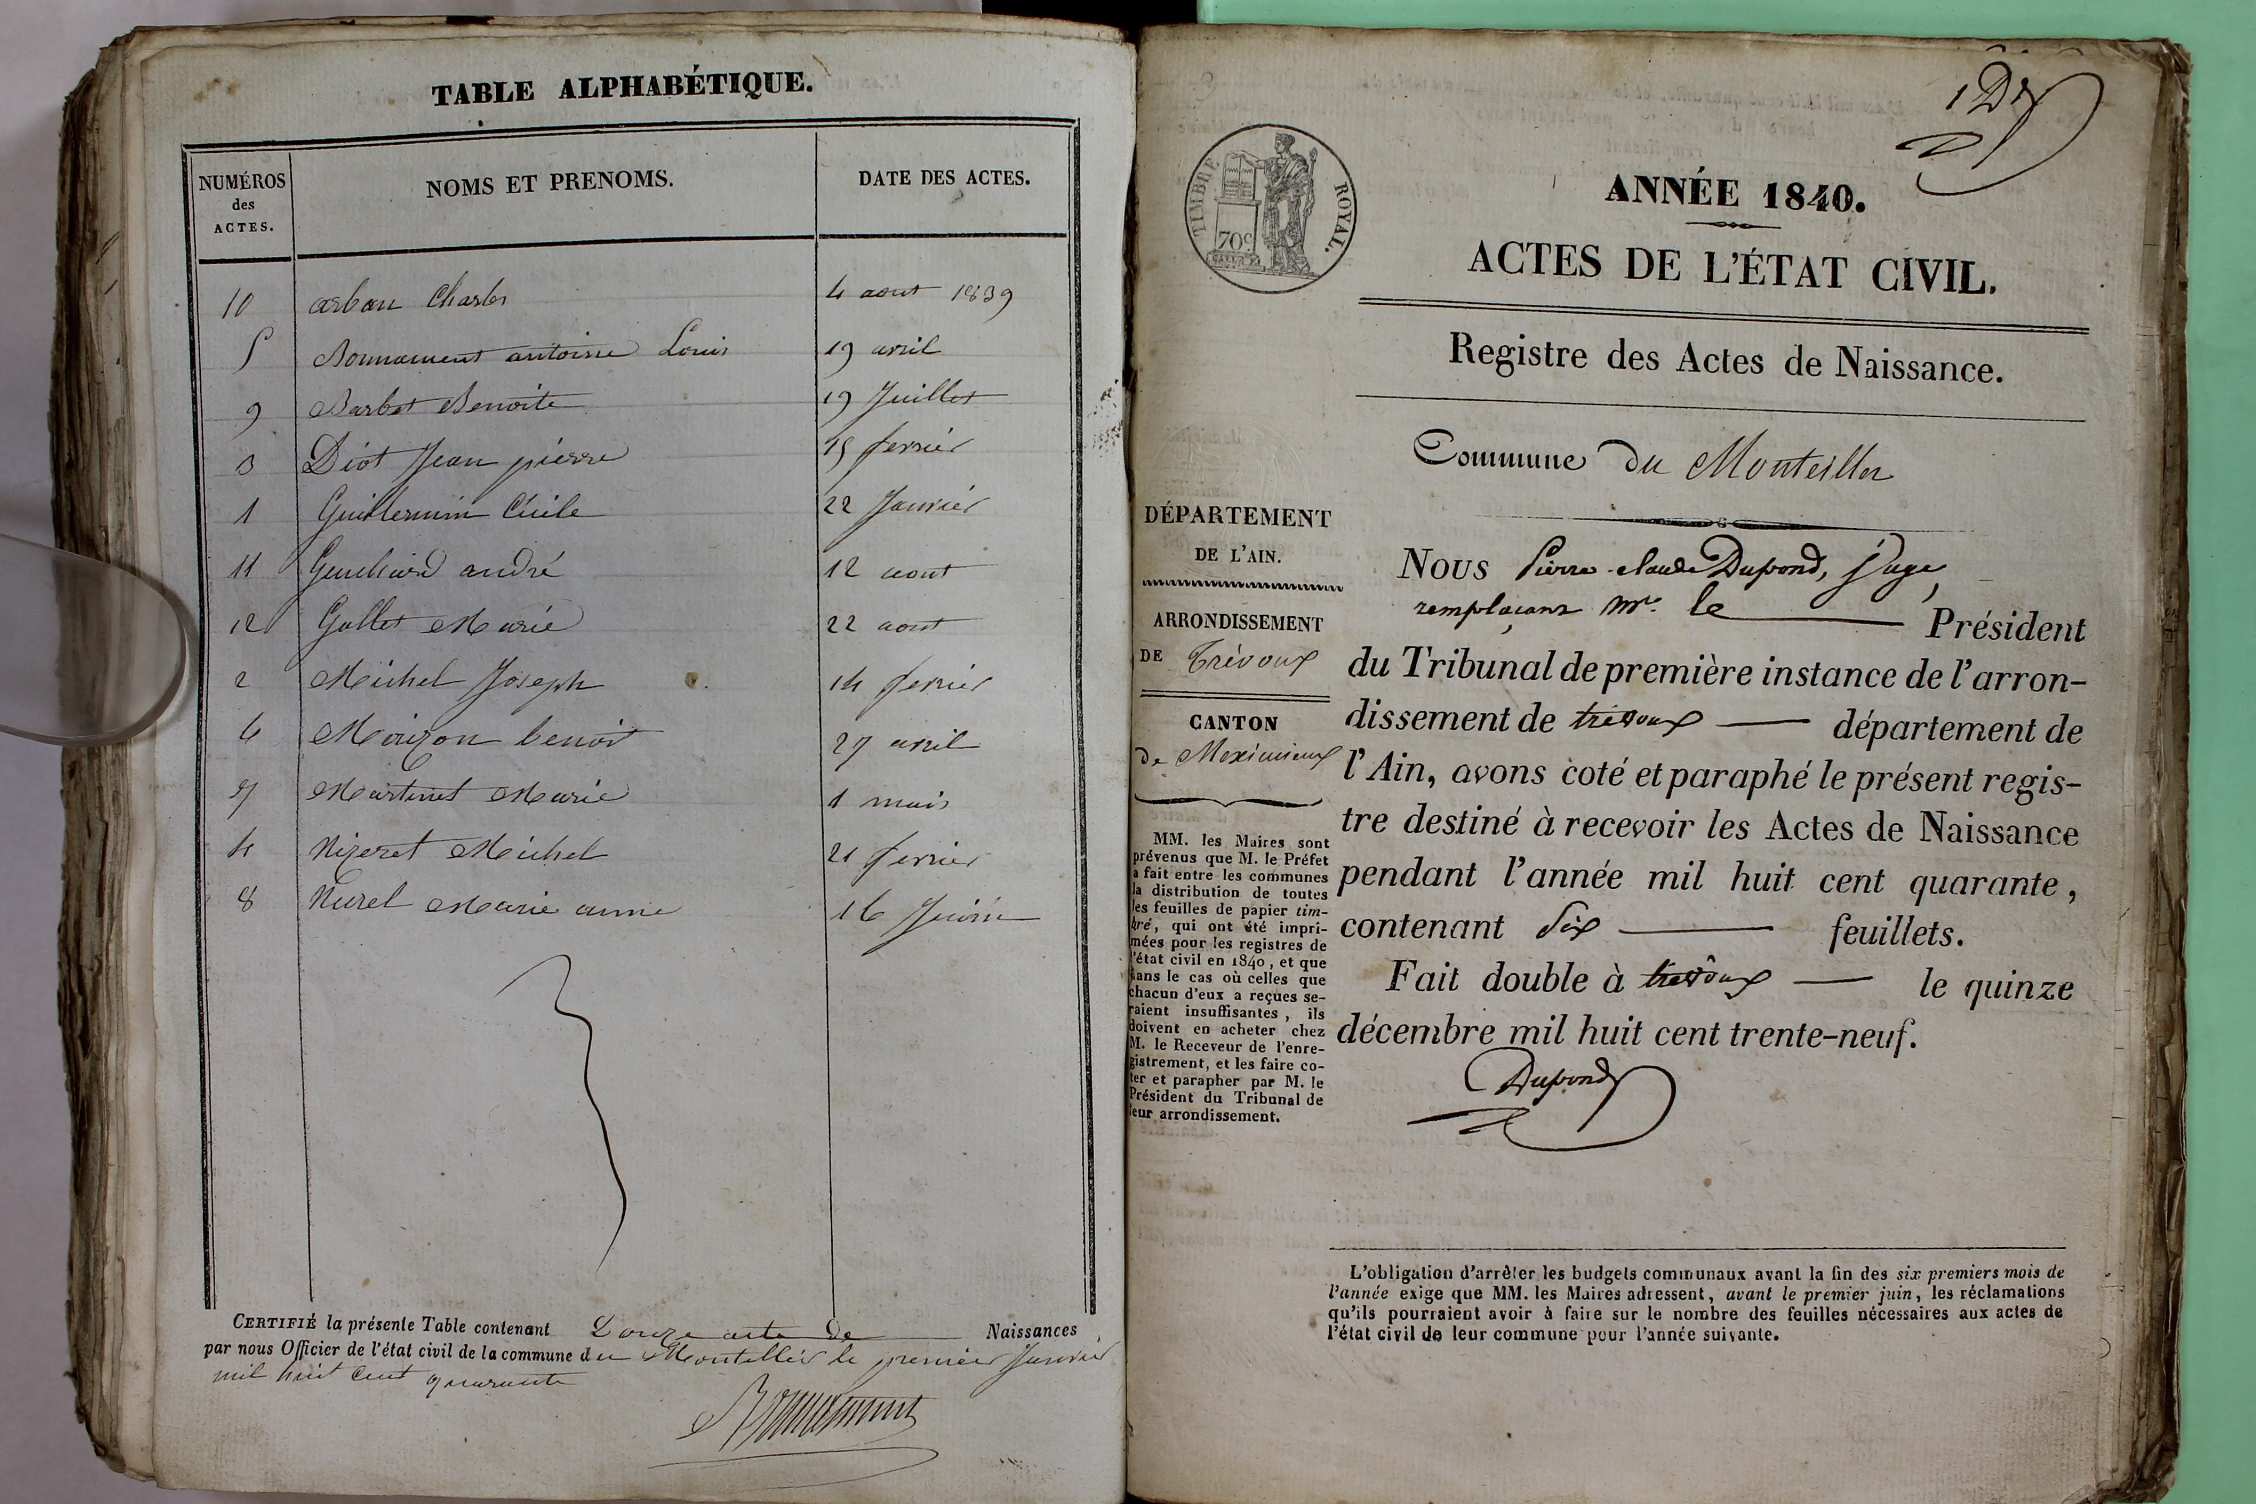 TABLE ALPHABÉTIQUE.
NUMÉROS des ACTES. NOMS ET PRENOMS. DATE DES ACTES.
10 arban Charles 4 aout 1839
5 Bonnament antoine Louis 19 avril
9 Barbet Benoite 19 Juillet
3 Diot Jean pierre 15 fevrier
1 Guillermin Cécile 22 Janvier
11 Guichard andré 12 aout
12 Gallet Marie 22 aout
2 Michel Joseph 14 fevrier
6 benoit 27 avril
7 Martinet Marie 1 mais
4 Nizeret Michel 21 fevrier
8 Nurel Marie anne 16 Juin
CERTIFIÉ la présente Table contenant Douze acte de Naissances
par nous Officier de l'état civil de la commune du Montellier le premier Janvier
mil huit Cent quarante
Bonnament
1 Dd
TIMBRE ROYAL.
70c
ANNÉE 1840.
ACTES DE L'ÉTAT CIVIL.
Registre des Actes de Naissance.
Commune du Monteiller
DÉPARTEMENT
DE L'AIN.
ARRONDISSEMENT
DE Trévoux
CANTON
de Meximieux
MM. les Maires sont
prévenus que M. le Préfet
a fait entre les communes
la distribution de toutes
les feuilles de papier tim-
bré, qui ont été impri-
mées pour les registres de
l'état civil en 1840, et que
dans le cas où celles que
chacun d'eux a reçues se-
raient insuffisantes, ils
doivent en acheter chez
M. le Receveur de l'enre-
gistrement, et les faire co-
ter et parapher par M. le
Président du Tribunal de
leur arrondissement.
Nous Pierre-claude Dupond, Juge,
remplaçant Mr. le Président
du Tribunal de première instance de l'arron-
dissement de trévoux département de
l'Ain, avons coté et paraphé le présent regis-
tre destiné à recevoir les Actes de Naissance
pendant l'année mil huit cent quarante,
contenant Six feuillets.
Fait double à trévoux le quinze
décembre mil huit cent trente-neuf.
Dupond
L'obligation d'arrêter les budgets communaux avant la fin des six premiers mois de
l'année exige que MM. les Maires adressent, avant le premier juin, les réclamations
qu'ils pourraient avoir à faire sur le nombre des feuilles nécessaires aux actes de
l'état civil de leur commune pour l'année suivante.